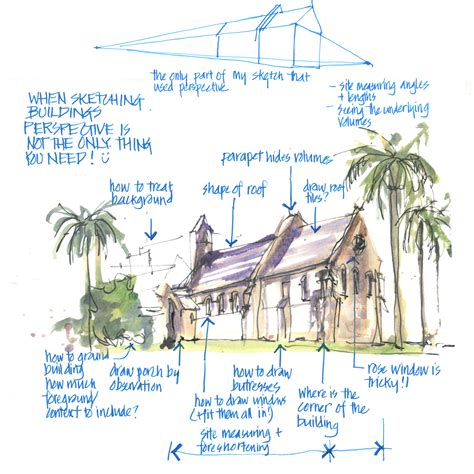 the only part of my sketch that
used perspective
- site measuring angles
+ lengths
- seeing the underlying
volumes
WHEN SKETCHING
BUILDINGS
PERSPECTIVE IS
NOT THE ONLY THING
YOU NEED!
parapet hides volumes
how to treat
background
shape of roof
draw roof
tiles?
how to ground
building
how much
foreground/
context to include?
draw porch by
observation
how to draw windows
(+ fit them all in!)
how to draw
buttresses
where is the
corner of the
building
rose window is
tricky!!
site measuring +
foreshortening